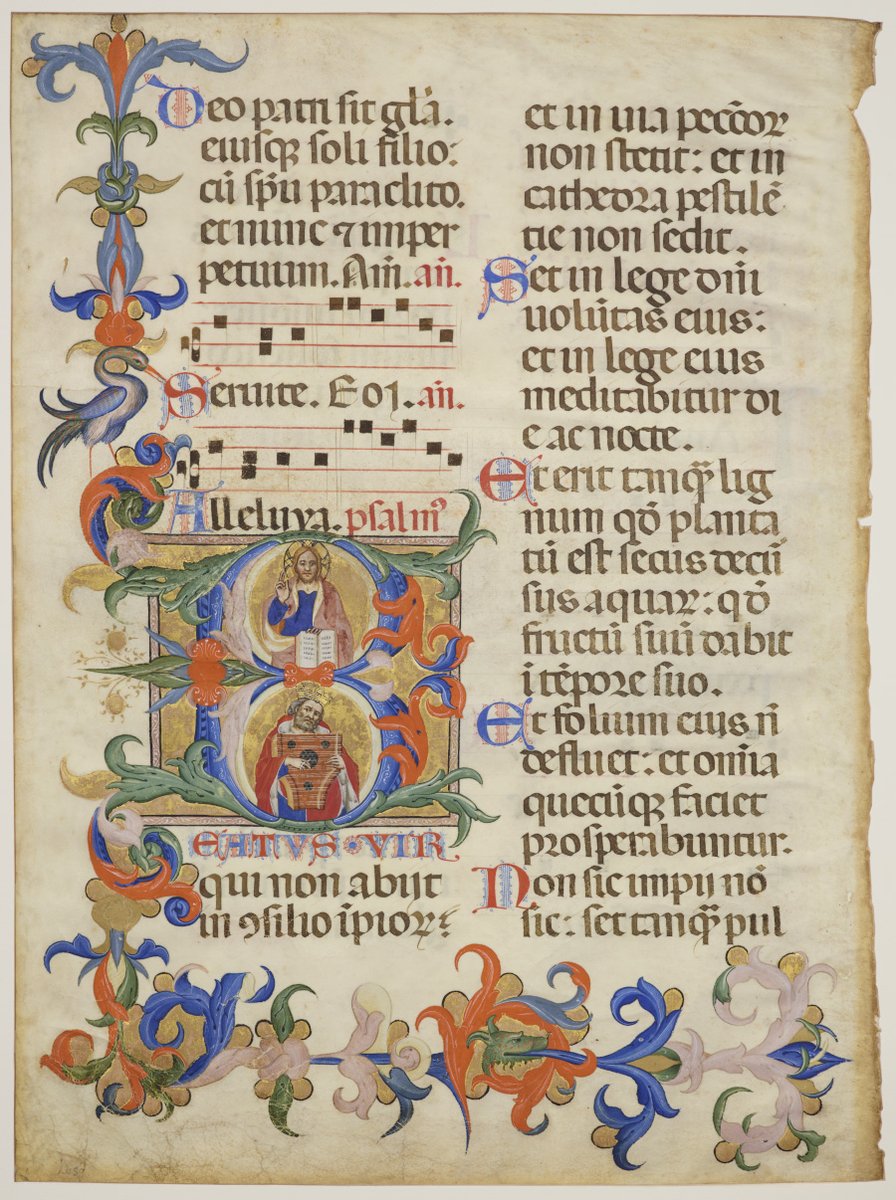 Deo patri sit gl̄a.
eiusqꝫ soli filio:
cū sp̄u paraclito.
et nunc ⁊ inper
petuum. Am̄. an̄.
Seruite. Eoi. an̄.
Alleluya. psalm⁹
BEATVS·VIR
qui non abijt
in ꝯsilio īpioꝝ:
et in uia pecc̄oꝝ
non stetit: et in
cathedra pestilē
tie non sedit.
Set in lege dn̄i
uolūtas eius:
et in lege eius
meditabitur di
e ac nocte.
Et erit tanqꝫ lig
num qd̄ planta
tū est secus decū
sus aquaꝝ: qd̄
fructū suū dabit
ī tēpore suo.
Et folium eius n̄
defluet: et om̄ia
quecūqꝫ faciet
prosperabuntur.
Non sic impij nō
sic: set tanqꝫ pul